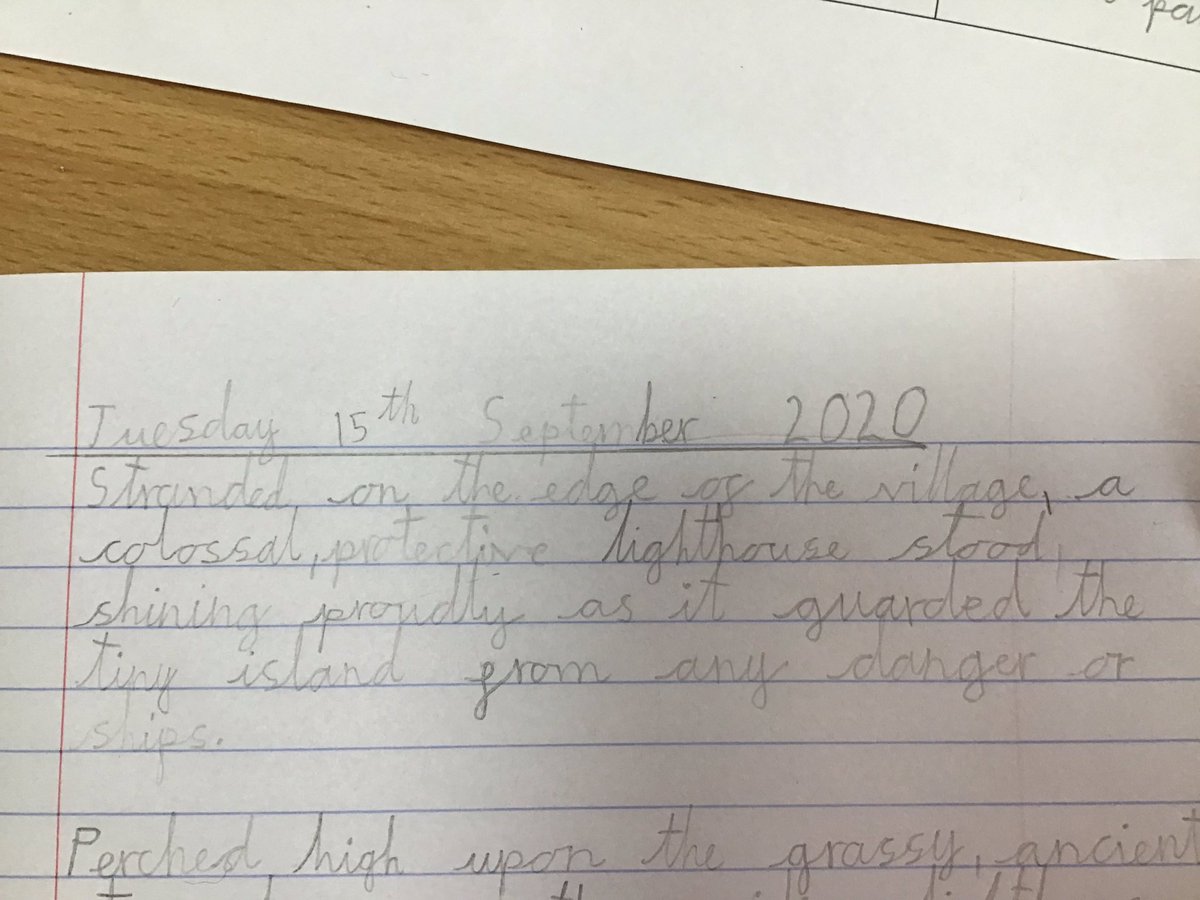 pa
Tuesday 15th September 2020
Stranded on the edge of the village, a
colossal, protective lighthouse stood,
shining proudly as it guarded the
tiny island from any danger or
ships.
Perched high upon the grassy, ancient